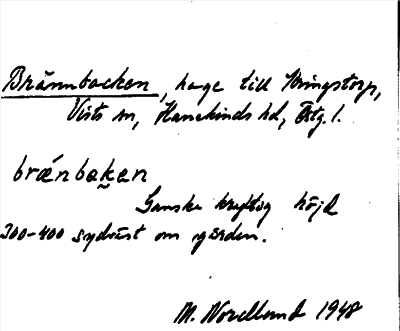 Brännbacken, hage till Bringstorp,
Vists sn, Hanekinds hd, Östg. l.
brænbakan
Ganska kraftig höjd
300-400 sydväst om gården.
M. Norellund 1948